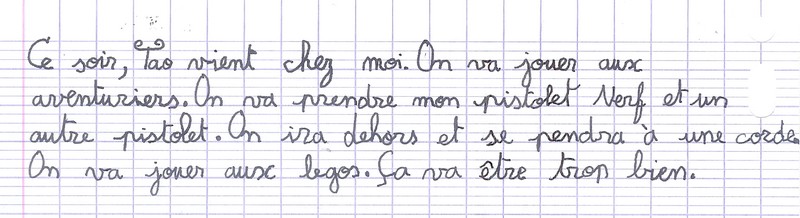 Ce soir, Tao vient chez moi. On va jouer aux
aventuriers. On va prendre mon pistolet Nerf et un
autre pistolet. On ira dehors et se pendra à une corde.
On va jouer aux legos. Ça va être trop bien.